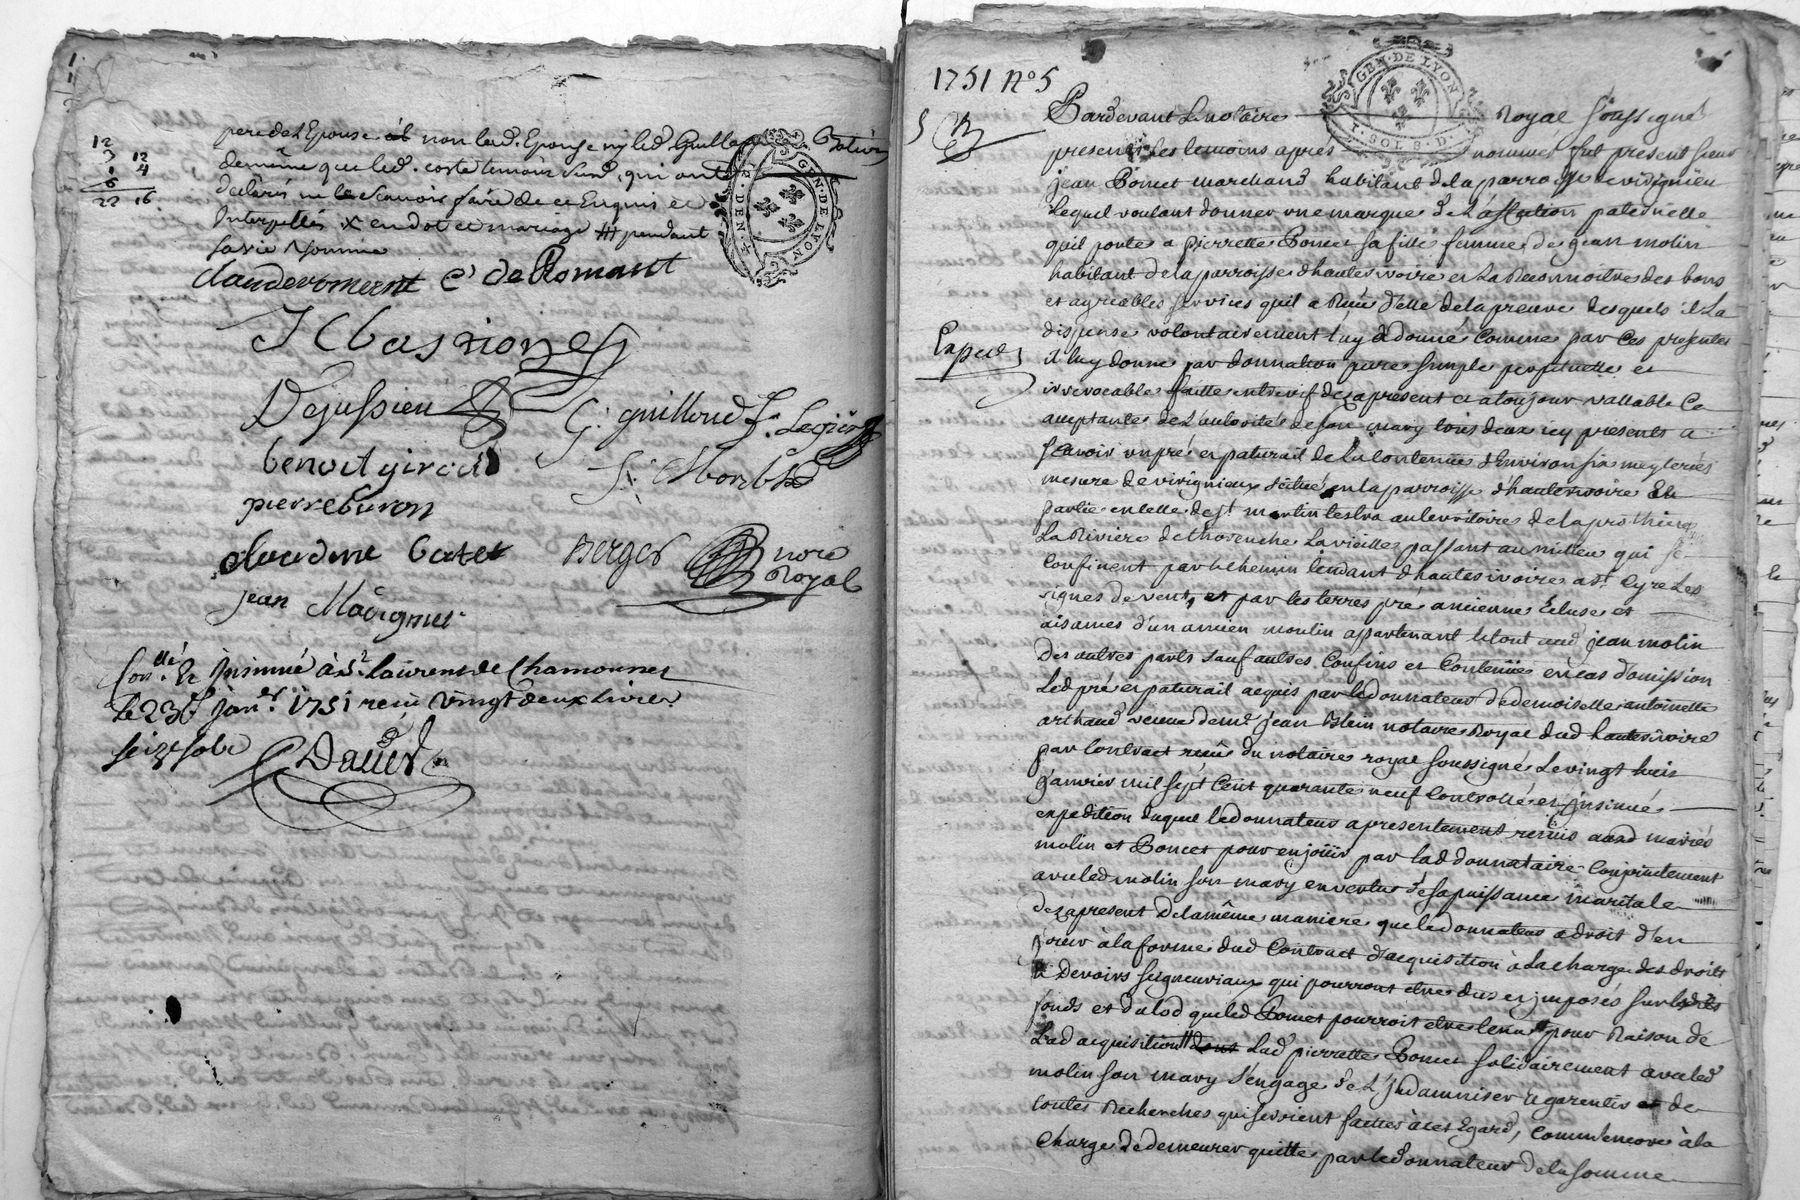 12
3 12
1 4
6
22 16
pere de L'Epouse non lad. Epouse ny led. Guilla
demême que led. coste temoins Surd. qui ont
declarés ne le Scavoir faire de ce Enquis et
Interpellés x en dot et mariage pendant
sa vie Nomme
claude roment C. de Romant
Dejussieu
G. guilloud
benoit girod
pierre buron
jean Mavignier
Berger nore
Royal
Con.llé & Insinué à St. Laurent de Chamousset
Le 23e Janv.er 1751 reçu vingt deux Livres
seize sols
GEN. DE LYON
1751 No 5
GEN. DE LYON
1. SOL 8. D.
Pardevant Le notaire Royal soussigné
presents les temoins apres nommés fut present sieur
jean Poncet marchand habitant de la parroisse de virignieu
Lequel voulant donner une marque de L'affection paternelle
quil porte a pierrette Poncet sa fille femme de jean molin
habitant de la parroisse d'hauterivoire et La Reconnoitre des bons
et agreables services quil a Reçu d'elle de la preuve desquels il La
dispense volontairement luy a donné Comme par Ces presentes
Il luy donne par donnation pure simple perpetuelle et
Exped.
irrevocable faitte entre vif dez apresent et a toujour vallable Ce
acceptante de L'autorité de son mary tous deux icy presents a
Scavoir un pré et paturail de la Contenue d'Environ six meyterées
mesure de virignieux Situé en la parroisse d'hauterivoire Et
partie en celle de St. martin lestra au territoire de la
La Riviere de thorenche La vieille passant au millieu qui se
Confinent par le chemin tendant d'hauterivoire a St. Cyr Les
vignes de vent, et par les terres pré ancienne Ecluse et
aisances d'un ancien moulin apartenant le tout aud. jean molin
des autres parts sauf autres Confins et Contenue en cas d'omission
Led. pré et paturail acquis par led. donnateur de demoiselle antoinette
arthaud veuve de mr. jean Blein notaire Royal dud. hauterivoire
par Contract reçu du notaire royal soussigné Le vingt huit
janvier mil sept Cent quarante neuf Controllé et Insinué
expedition duquel le donnateur a presentement remis auxd. mariés
molin et Poncet pour en jouir par lad. donnataire Conjointement
avec led. molin son mary en vertu de sa puissance maritale
dez apresent de la même maniere que le donnateur a droit d'en
jouir à la forme dud. Contract d'acquisition à la charge des droits
& Devoirs seigneuriaux qui pourront etre dus et imposés sur lesdits
fonds et du lod que led. Poncet pourroit etre tenu pour Raison de
Lad. acquisition Lad. pierrette Poncet solidairement avec led.
molin son mary s'engage de L'Indamniser & garentir de
toutes Recherches qui seroient faittes à cet Egard, Comme encore à la
Charge de demeurer quitte par le donnateur de la somme